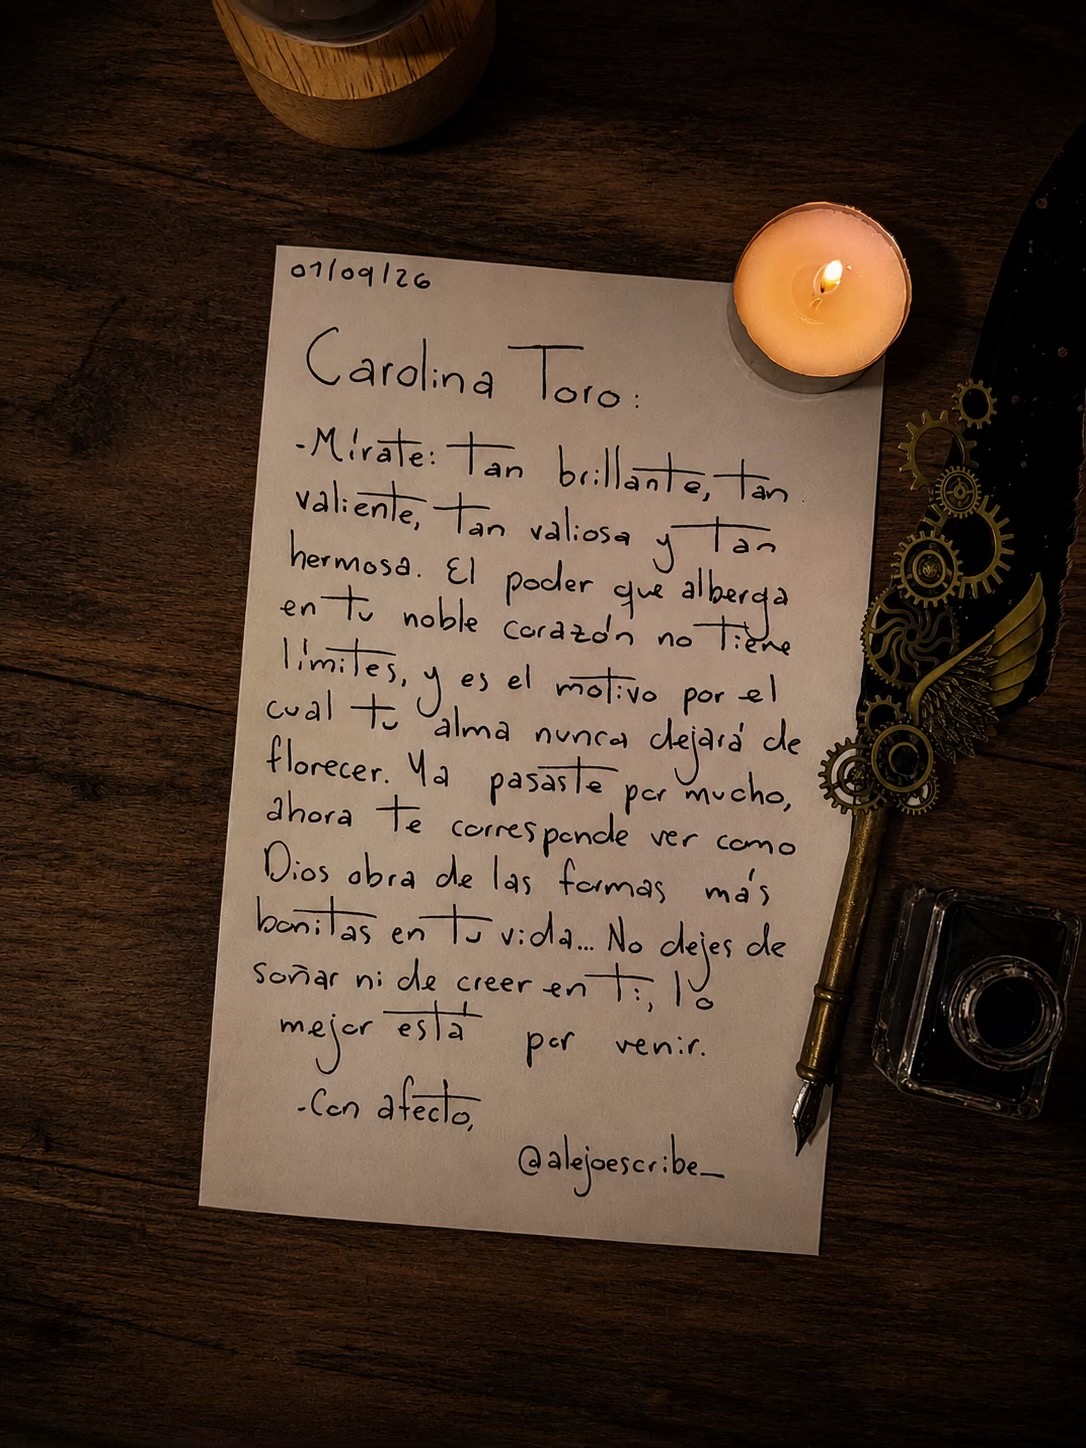 01/09/26
Carolina Toro:
-Mírate: Tan brillante, tan
valiente, tan valiosa y tan
hermosa. El poder que alberga
en tu noble corazón no tiene
límites, y es el motivo por el
cual tu alma nunca dejará de
florecer. Ya pasaste por mucho,
ahora te corresponde ver como
Dios obra de las formas más
bonitas en tu vida... No dejes de
soñar ni de creer en ti, lo
mejor está por venir.
-Con afecto,
@alejoescribe_